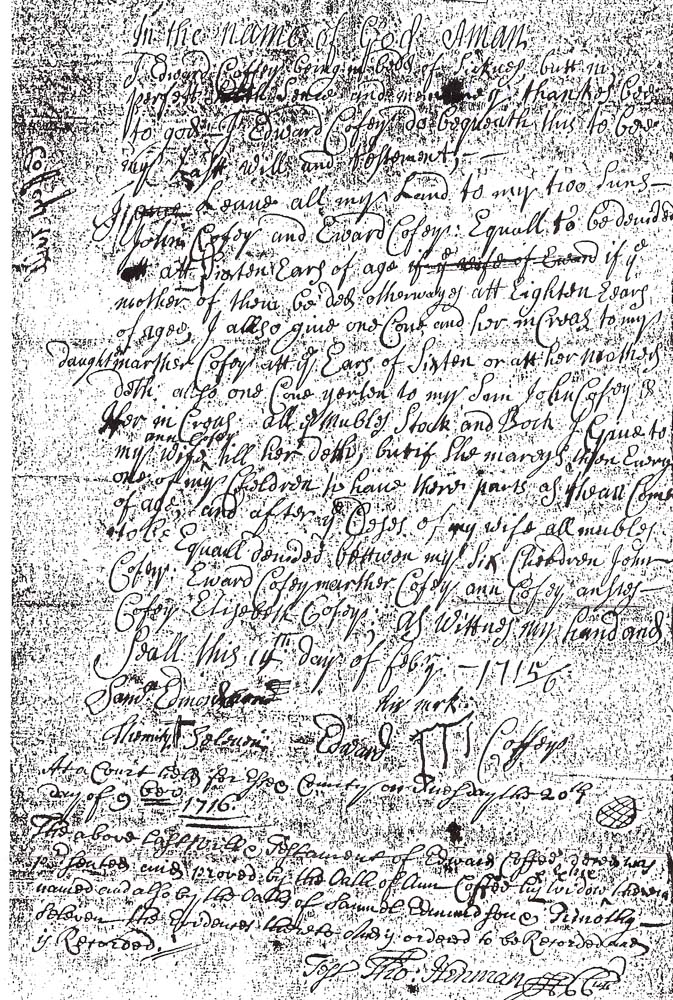 In the name of God Aman
I Edward Coffey being in bed of Siknes butt in
perfett Sence and memory thankes bee
to god I Edward Cofey do bequeath this to bee
my Last will and testement;
I Leaue all my Land to my too Suns
John Cofey and Eward Cofey: Equall to be deuided
att Sixten Ears of age if ye
mother of them be ded otherwayes att Eighten Ears
of agee, I allso giue one Cone and her inCreas to my
daught marther Cofey att ye Ears of Sixten or att her mothers
deth. also one Cone yerlen to my Sun John Cofey &
Her in Creas all ye mubles Stock and Both I Giue to
ann Cofey
my wife till her deth, but if She mareys then Euery
one of my Cheldren to haue there parts as theay Come
of age, and after ye Deses of my wife all mubles
to be Equall deuided bettwen my Six Cheldren John
Cofey Eward Cofey marther Cofey ann Cofey austes
Cofey Elizebeth Cofey; as Wittnes my hand and
Seall this 14th day of feby - 1715/6
Saml Edmondson
his mrk:
Thimity Seleuen;
Edward Coffey
At a Court held for Essex County on Tuesday the 20th
day of 9ber 1716.
The above Last will & Testament of Edward Coffee deced was
presented and proved by the Oath of Ann Coffee his widow therein
named and also by the Oaths of Samuel Edmundson & Timothy
Seleven the Evidences thereto & ordered to be Recorded and
is Recorded.
Test Tho: Henman